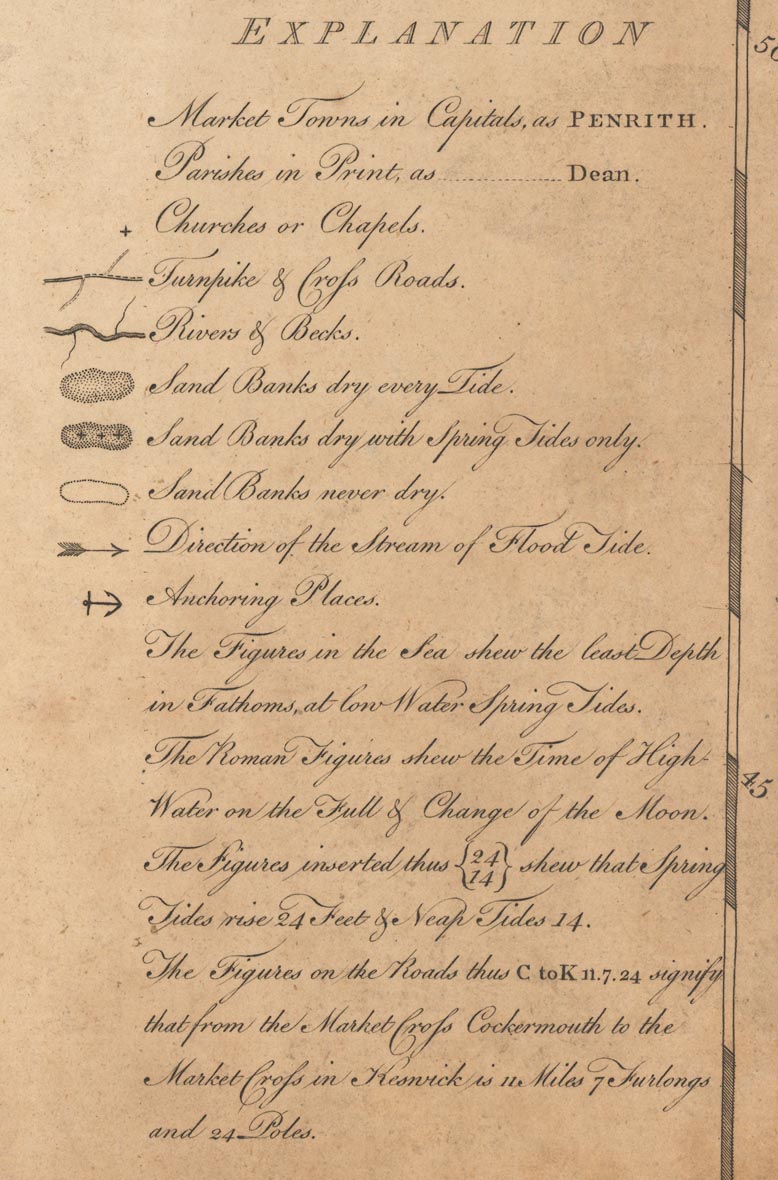 EXPLANATION
50
Market Towns in Capitals, as PENRITH.
Parishes in Print, as .................... Dean.
Churches or Chapels.
Turnpike & Croſs Roads.
Rivers & Becks.
Sand Banks dry every Tide.
Sand Banks dry with Spring Tides only.
Sand Banks never dry.
Direction of the Stream of Flood Tide.
Anchoring Places.
The Figures in the Sea shew the least Depth
in Fathoms, at low Water Spring Tides.
The Roman Figures shew the Time of High-
45
Water on the Full & Change of the Moon.
The Figures inserted thus {24 14} shew that Spring
Tides rise 24 Feet & Neap Tides 14.
The Figures on the Roads thus C to K 11.7.24 signify
that from the Market Croſs Cockermouth to the
Market Croſs in Keswick is 11 Miles 7 Furlongs
and 24 Poles.